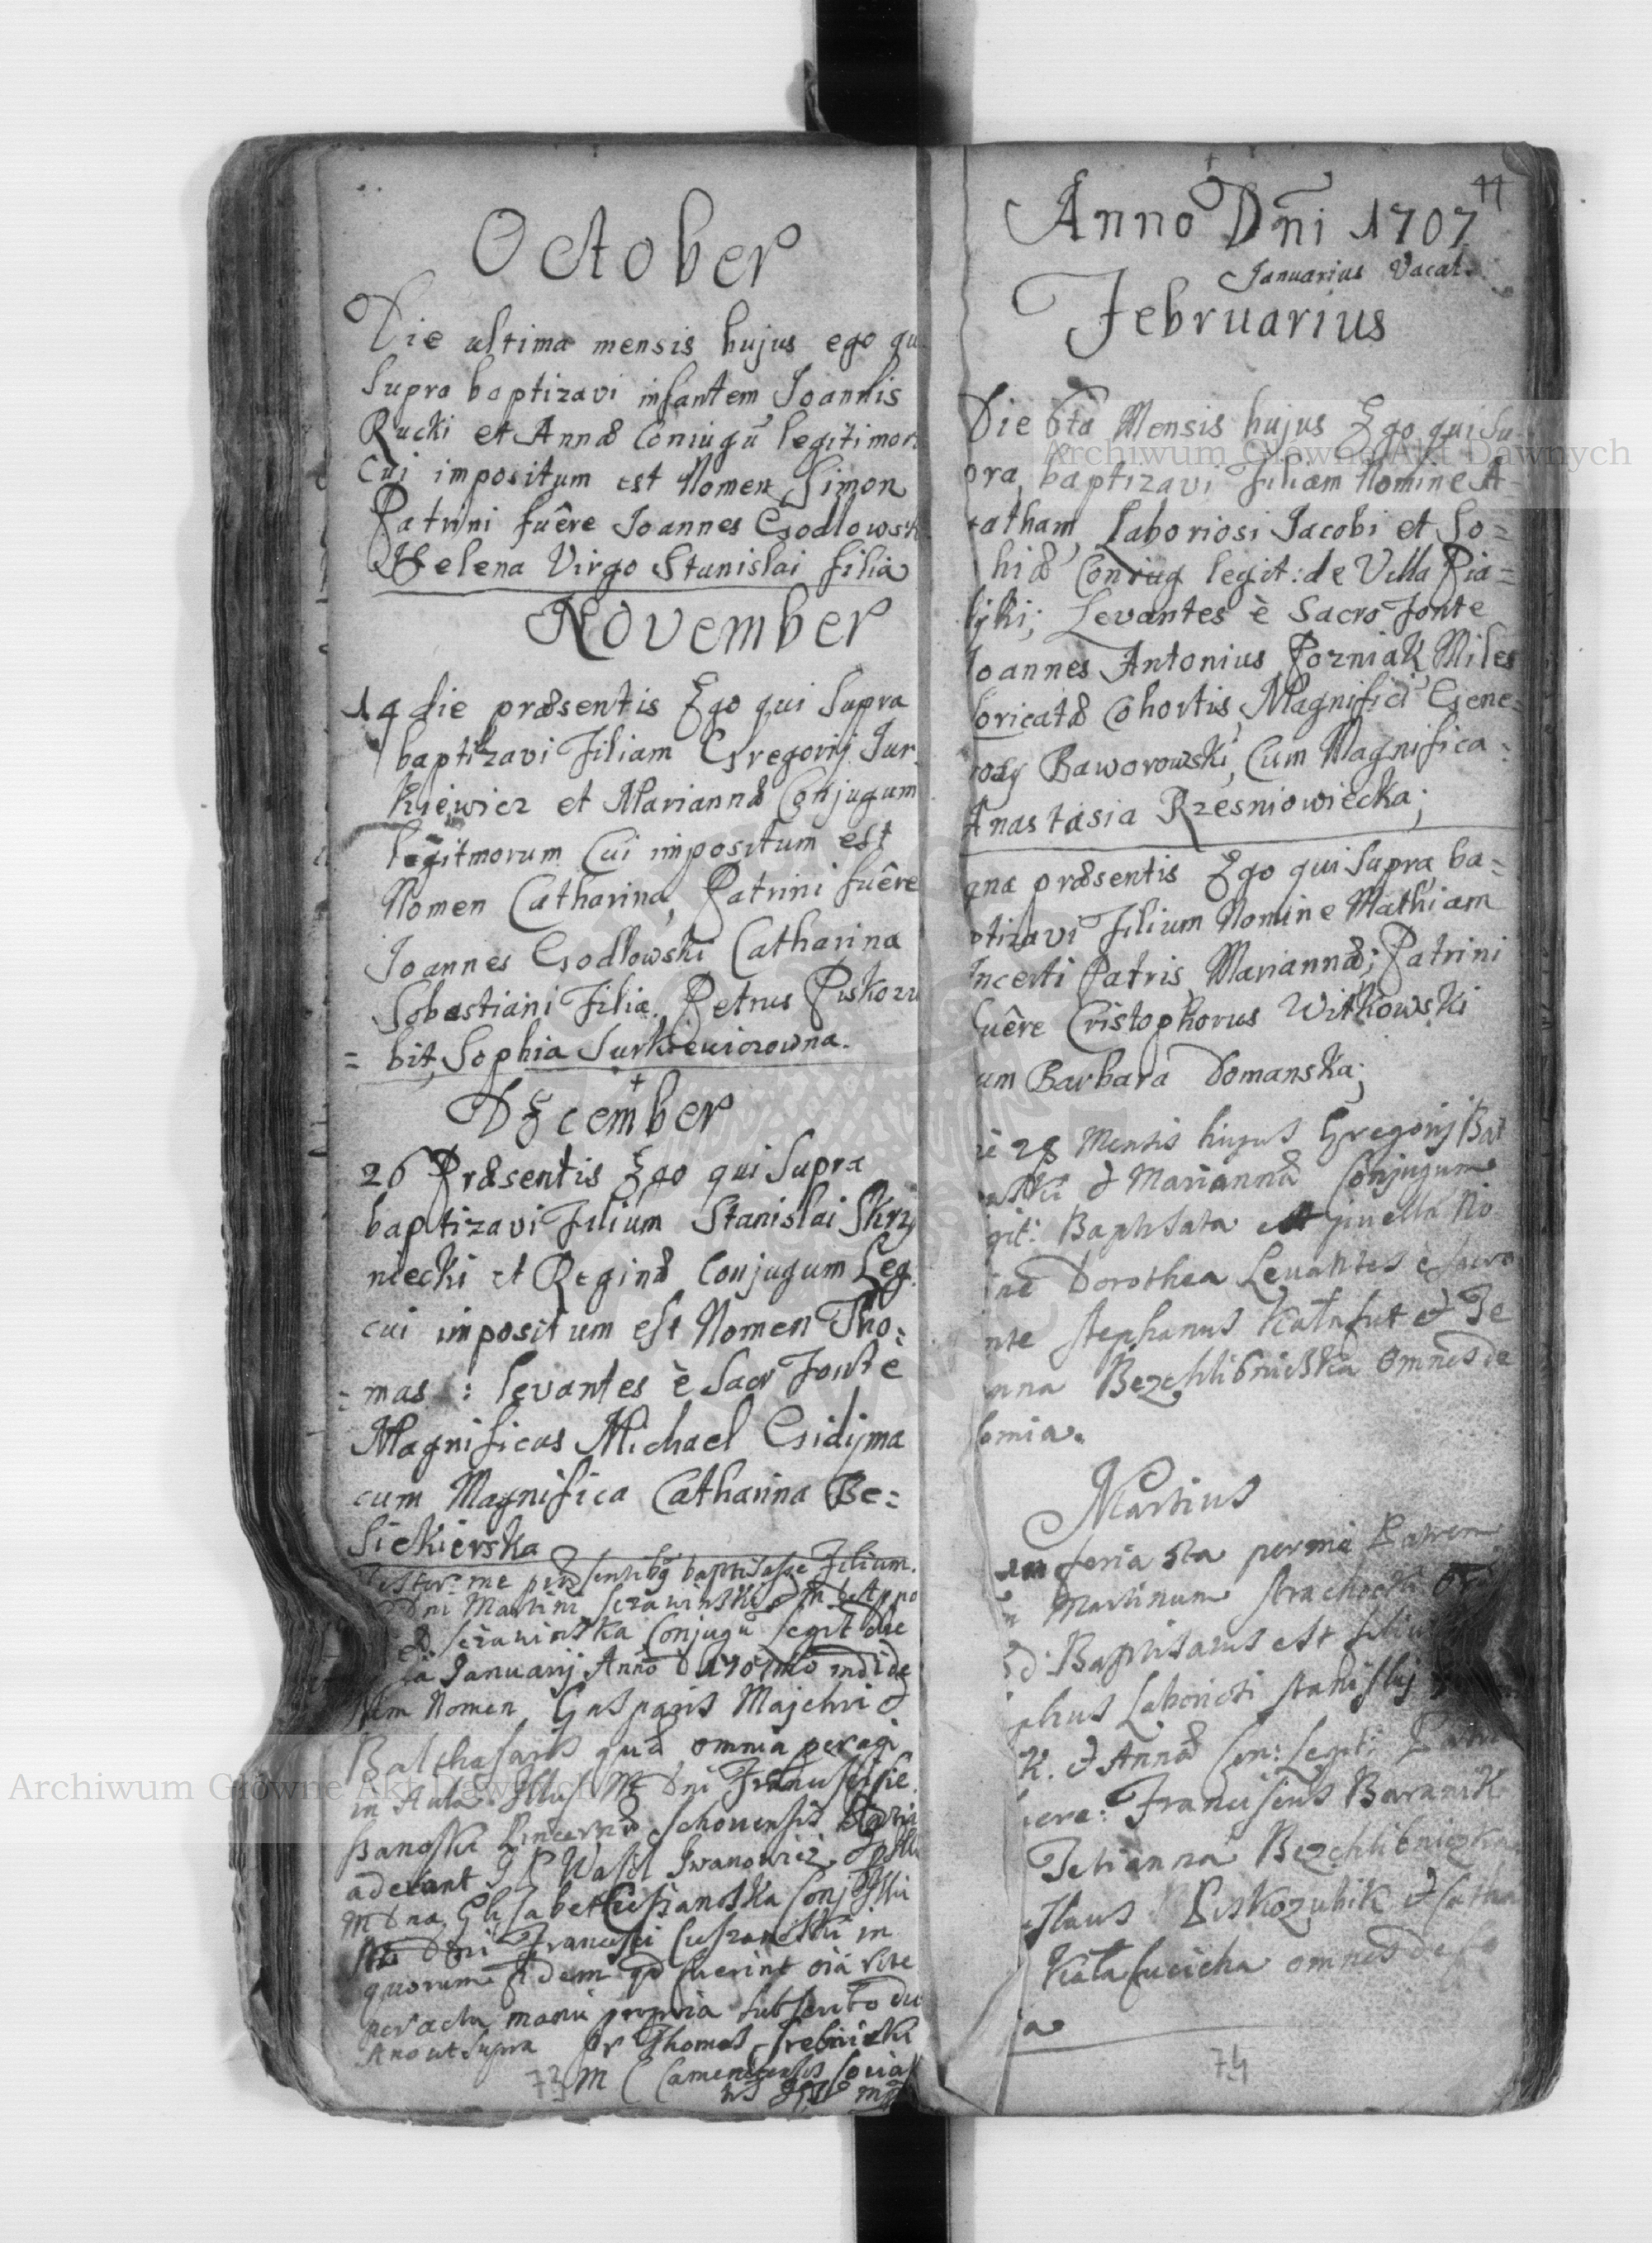 October
Die ultima mensis hujus ego qu
supra baptizavi infantem Joannis
Rucki et Annæ Coniugũ legitimor
Cui impositum est Nomen Simon
Patrini fuêre Joannes Godlowsk
Helena Virgo Stanislai filia
November
19 die præsentis Ego qui Supra
baptizavi Filiam Gregorij Jur
kiewicz et Mariannæ Conjugum
legitmorum Cui impositum est
Nomen Catharina, Patrini fuêre
Joannes Godlowski Catharina
Sobastiani Filia. Petrus Piskozu
= bit, Sophia Jurkiewiczowna.
December
26 Præsentis Ego qui Supra
baptizavi Filium Stanislai Skrzy
niecki et Reginæ Conjugum Leg.
cui impositum est Nomen Tho=
= mas : levantes è Sacr Fonte
Magnificus Michael Gidyma
cum Magnifica Catharina Be=
Siekierska
me præsentibg baptisasse Filium.
Dni Martini
Conjugũ legit die
Januarij Anno
Nomen Gasparis Majchri &
Balthasaris quæ omnia peragi
in Aula Dni
Pincernæ
aderant Wasil Iwanowicz
Conj
Dni Francisci in
quorum fidem qd fuerint oia rite
peracta manu propria subscribo
Ano ut Supra Fr Thomas
73
44
Anno Dñi 1707
Januarius Vacat.
Februarius
Die 6ta Mensis hujus Ego qui Su
pra, baptizavi Filiam Nomine A-
gatham, Laboriosi Jacobi et So=
hiæ Coniug legit: de Villa Pia=
tyki; Levantes è Sacro Fonte
Joannes Antonius Pozniak Miles
loricatæ Cohortis, Magnifici Gene=
rosy Baworowski, Cum Magnifica
Anastasia Rzesniowiecka;
gna præsentis Ego qui Supra ba=
ptizavi Filium Nomine Mathiam
Incerti Patris, Mariannæ; Patrini
fuêre Cristophorus Witkowski
um Barbara Domanska;
ie 28 Mensis hujus Gregorij Bat
& Mariannæ Conjugum
git: Baptisata est No
ine Dorothea Levantes è Sacro
nte Stephanus Katafut & Te
anna Bezchlibnicska omnes de
lomia.
Martius
feria 5ta per me Patrem
Martinum
d: Baptisatus est filius
phus Laboriosi Stanislaj
k. & Annæ Con: Legiti
uere: Franciscus Baranik
Tetianna Bezchlibniczka
Piskozubik & Catha
Katafucicha omnes de
ia
74
Archiwum Główne Akt Dawnych
Archiwum Główne Akt Dawnych